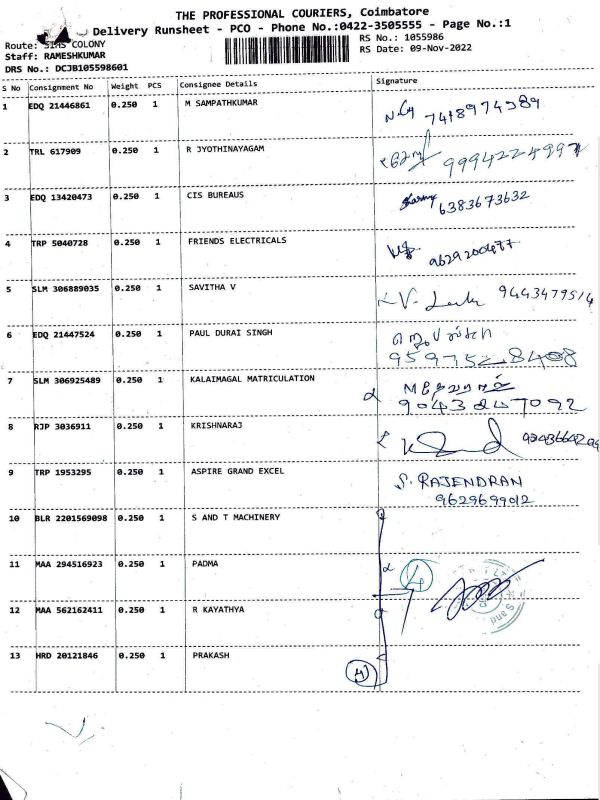 THE PROFESSIONAL COURIERS, Coimbatore
Delivery Runsheet - PCO - Phone No.:0422-3505555 - Page No.:1
Route: SIHS COLONY
RS No.: 1055986
Staff: RAMESHKUMAR
RS Date: 09-Nov-2022
DRS No.: DCJB105598601
S No Consignment No Weight PCS Consignee Details Signature
1 EDQ 21446861 0.250 1 M SAMPATHKUMAR 7418974989
2 TRL 617909 0.250 1 R JYOTHINAYAGAM 9994224997
3 EDQ 13420473 0.250 1 CIS BUREAUS 6383673632
4 TRP 5040728 0.250 1 FRIENDS ELECTRICALS 9629200477
5 SLM 306889035 0.250 1 SAVITHA V 9443479514
6 EDQ 21447524 0.250 1 PAUL DURAI SINGH
9597528408
7 SLM 306925489 0.250 1 KALAIMAGAL MATRICULATION
9043247092
8 RJP 3036911 0.250 1 KRISHNARAJ
9 TRP 1953295 0.250 1 ASPIRE GRAND EXCEL S. RAJENDRAN
9629699012
10 BLR 2201569098 0.250 1 S AND T MACHINERY
11 MAA 294516923 0.250 1 PADMA 4
12 MAA 562162411 0.250 1 R KAYATHYA
13 HRD 20121846 0.250 1 PRAKASH